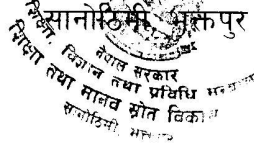 सानोठिमी, भक्तपुर
नेपाल सरकार
शिक्षा, विज्ञान तथा प्रविधि
शिक्षा तथा मानव स्रोत विकास
सानोठिमी,